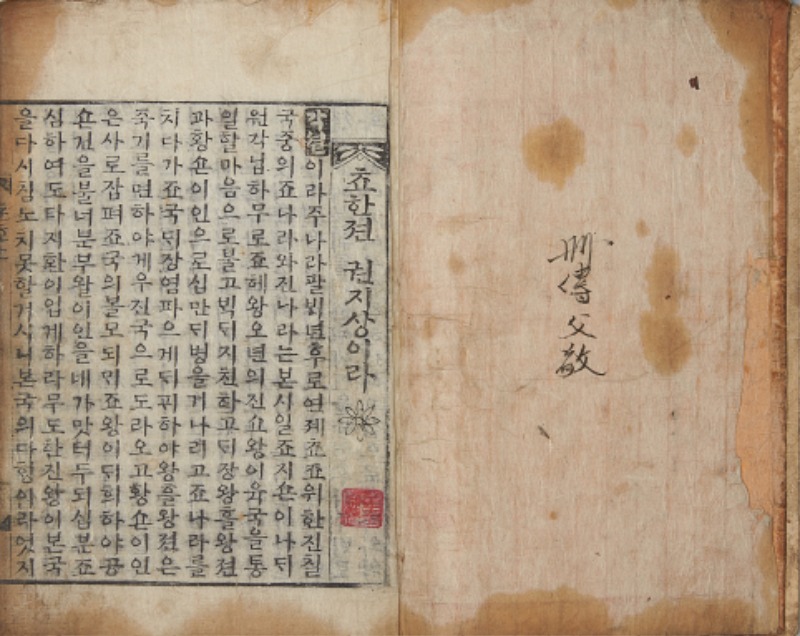 父敬
쵸한젼 권지상이라
이라주나라팔빅년후로연졔쵸죠위한진칠
국중의죠나라와진나라는본시일죠지숀이나
하무로죠혜왕오년의진쇼왕이육국을통
일할마음으로불고빅듸지천하고듸장왕흘왕젼
과황숀이인으로십만듸병을거나려고죠나라를
치다가죠국듸장염파으게듸하야왕흘왕젼은
죽기를면하야계우진국으로도라오고황숀이인
은사로잡펴죠국의볼모되민죠왕이듸희하야공
숀건을불너분부왈이인을네가맛터두되십분죠
심하여도타지환이업게하라무도한진왕이본국
을다시침노치못할거시니본국의다힝이라엇지